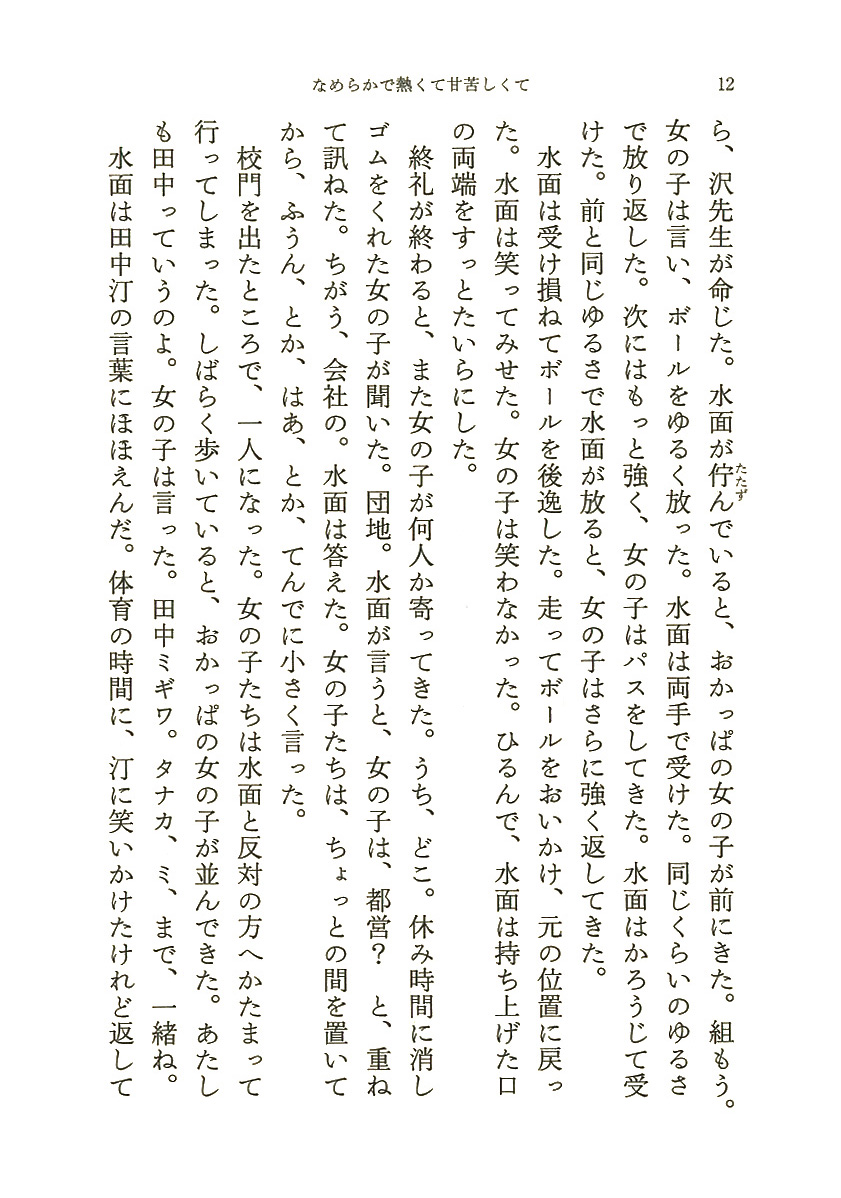 なめらかで熱くて甘苦しくて
12
ら、沢先生が命じた。水面が佇んでいると、おかっぱの女の子が前にきた。組もう。
たたず
女の子は言い、ボールをゆるく放った。水面は両手で受けた。同じくらいのゆるさ
で放り返した。次にはもっと強く、女の子はパスをしてきた。水面はかろうじて受
けた。前と同じゆるさで水面が放ると、女の子はさらに強く返してきた。
水面は受け損ねてボールを後逸した。走ってボールをおいかけ、元の位置に戻っ
た。水面は笑ってみせた。女の子は笑わなかった。ひるんで、水面は持ち上げた口
の両端をすっとたいらにした。
終礼が終わると、また女の子が何人か寄ってきた。うち、どこ。休み時間に消し
ゴムをくれた女の子が聞いた。団地。水面が言うと、女の子は、都営?　と、重ね
て訊ねた。ちがう、会社の。水面は答えた。女の子たちは、ちょっとの間を置いて
から、ふうん、とか、はあ、とか、てんでに小さく言った。
校門を出たところで、一人になった。女の子たちは水面と反対の方へかたまって
行ってしまった。しばらく歩いていると、おかっぱの女の子が並んできた。あたし
も田中っていうのよ。女の子は言った。田中ミギワ。タナカ、ミ、まで、一緒ね。
水面は田中汀の言葉にほほえんだ。体育の時間に、汀に笑いかけたけれど返して